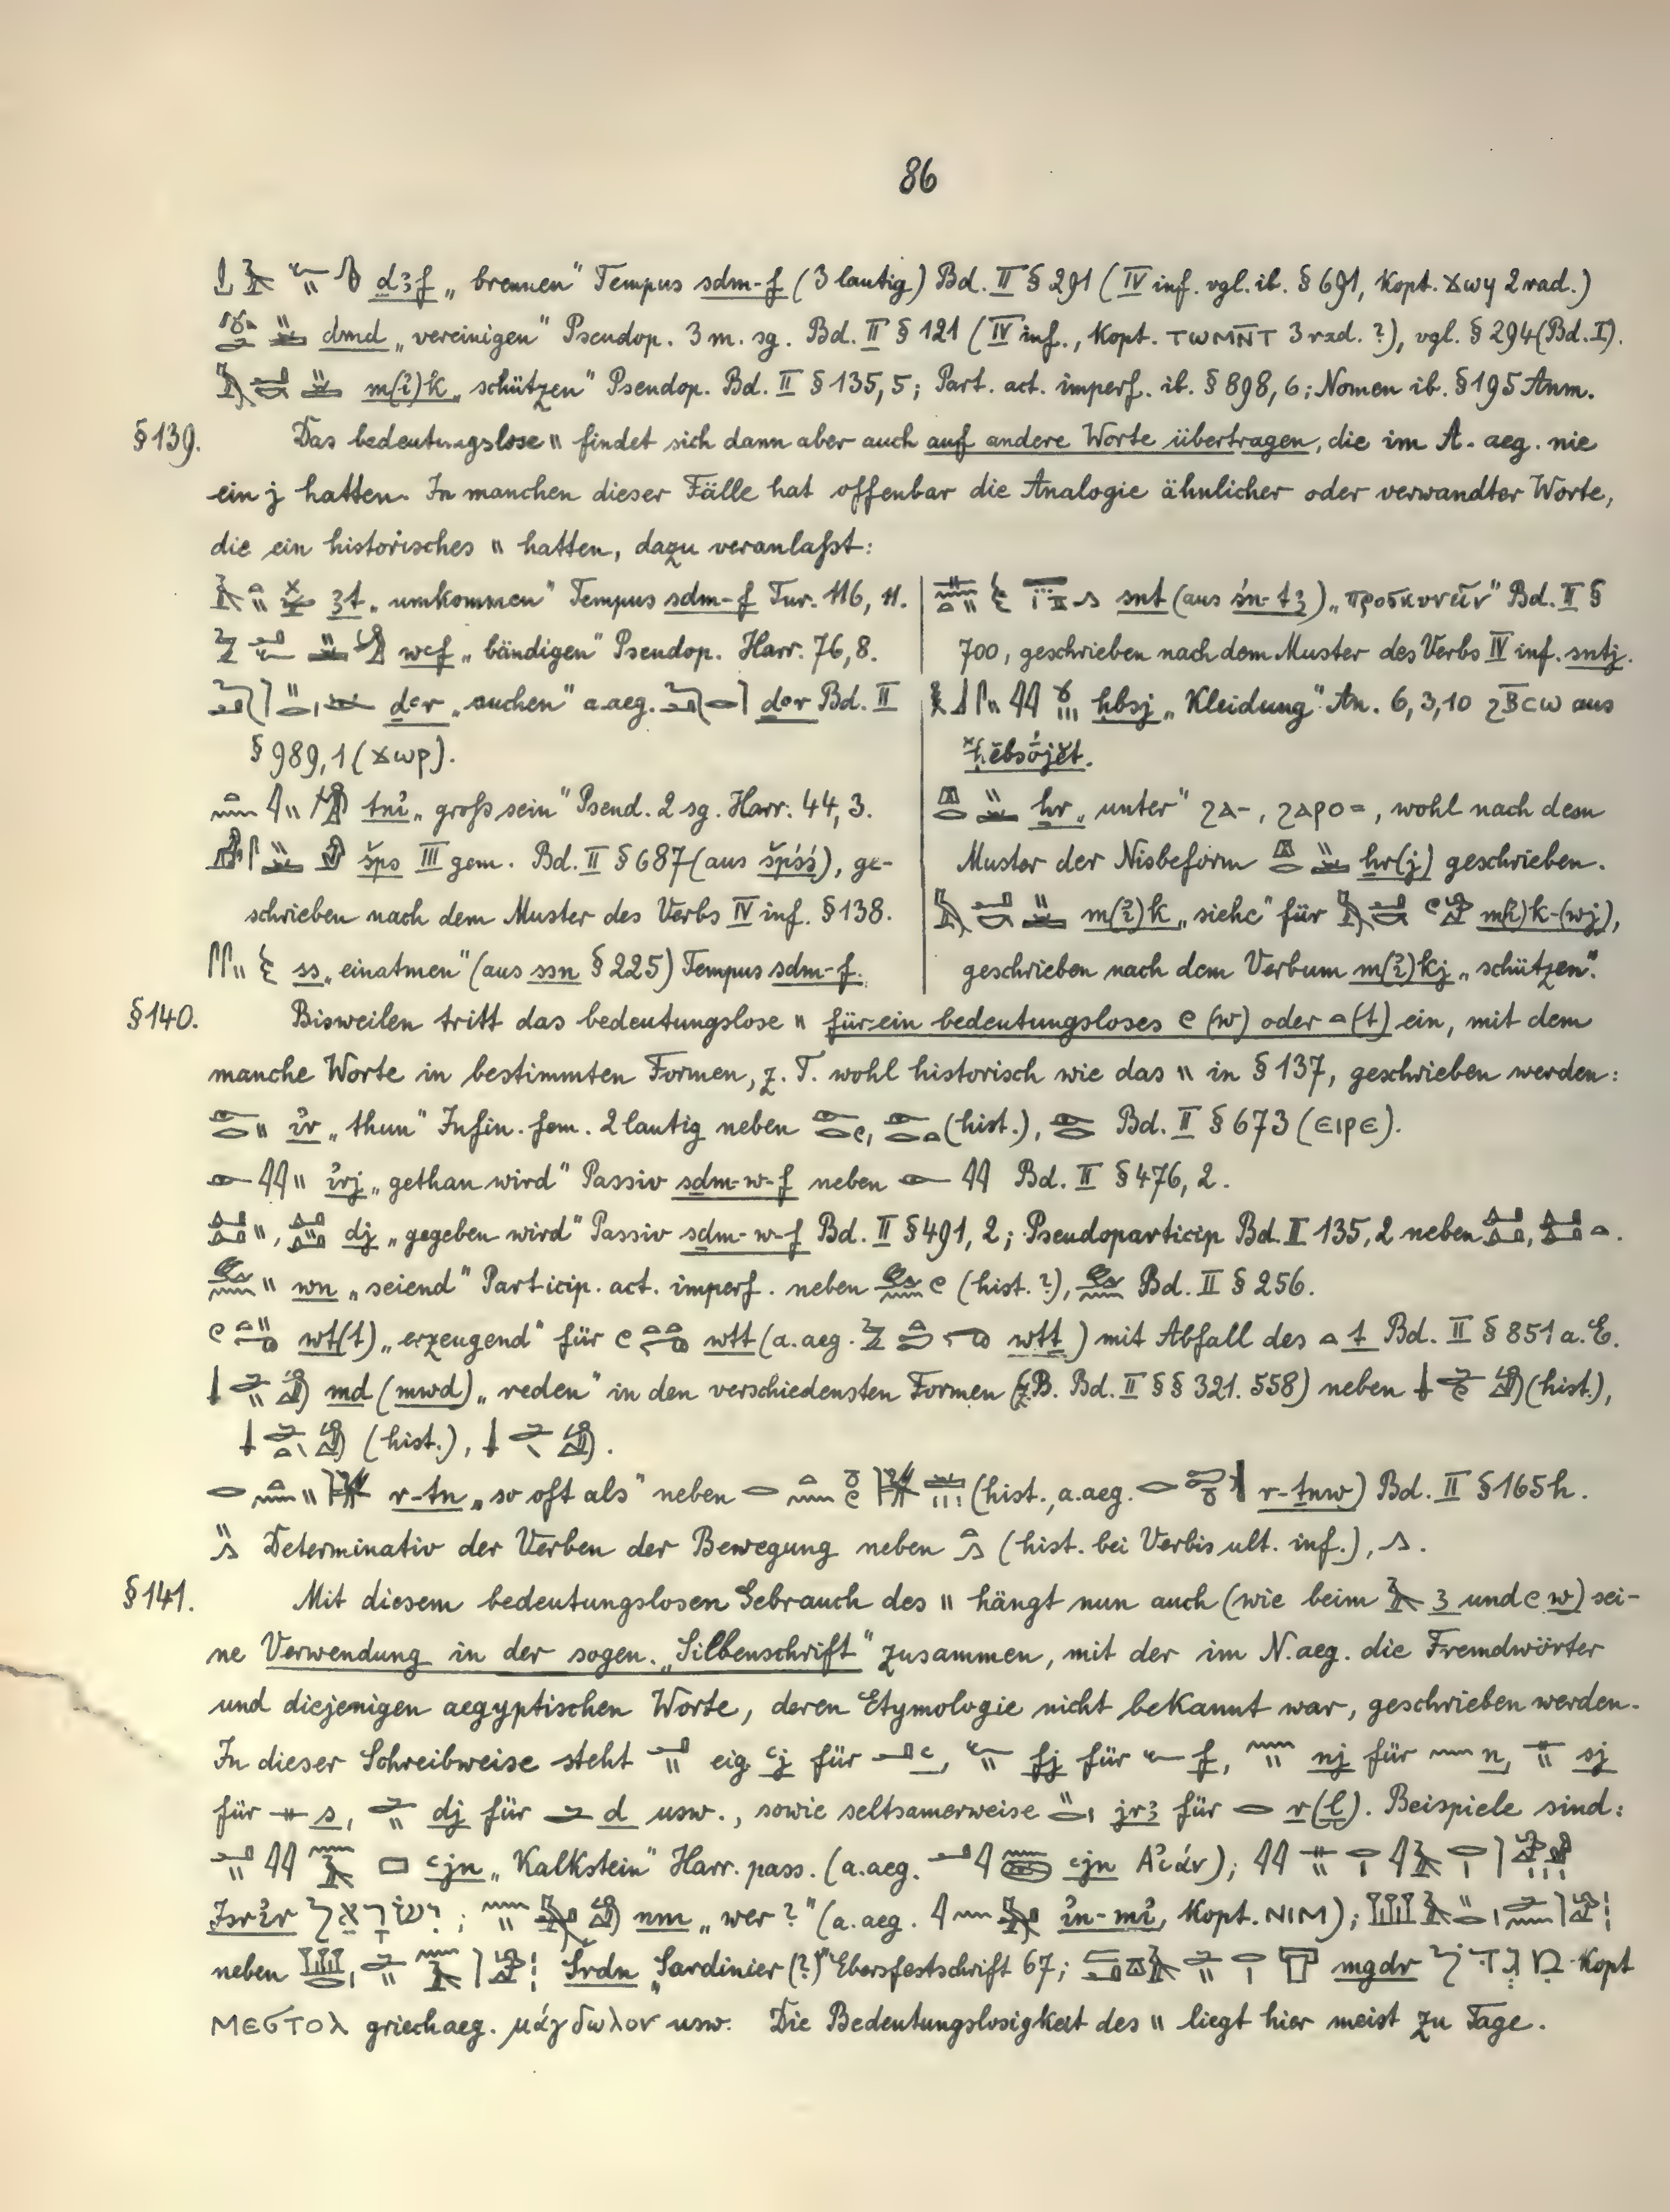 86
ḏꜣf „brennen" Tempus sdm-f (3 lautig) Bd. II § 291 (IV inf. vgl. ib. § 691, Kopt. ϫⲱϥ 2 rad.)
dmd „vereinigen" Pseudop. 3 m. sg. Bd. II § 121 (IV inf., Kopt. ⲧⲱⲙⲛ̄ⲧ 3 rad. ?), vgl. § 294 (Bd. I).
m(ỉ)k „schützen" Pseudop. Bd. II § 135, 5; Part. act. imperf. ib. § 898, 6; Nomen ib. § 195 Anm.
§ 139. Das bedeutungslose 𓏭 findet sich dann aber auch auf andere Worte übertragen, die im A. aeg. nie
ein j hatten. In manchen dieser Fälle hat offenbar die Analogie ähnlicher oder verwandter Worte,
die ein historisches 𓏭 hatten, dazu veranlaßt:
ꜣt „umkommen" Tempus sdm-f Tur. 116, 11.
wꜥf „bändigen" Pseudop. Harr. 76, 8.
dꜥr „suchen" a.aeg. dꜥr Bd. II
§ 989, 1 (ϫⲱⲣ).
tnỉ „groß sein" Pseud. 2 sg. Harr. 44, 3.
šps III gem. Bd. II § 687 (aus špśś), ge-
schrieben nach dem Muster des Verbs IV inf. § 138.
ss „einatmen" (aus ssn § 225) Tempus sdm-f.
snt (aus śn-tꜣ) „προσκυνεῖν" Bd. II §
700, geschrieben nach dem Muster des Verbs IV inf. sntj.
ḥbsj „Kleidung" An. 6, 3, 10 ϩⲃ̄ⲥⲱ aus
*ḥĕbsójĕt.
ẖr „unter" ϩⲁ-, ϩⲁⲣⲟ=, wohl nach dem
Muster der Nisbeform ẖr(j) geschrieben.
m(ỉ)k „siehe" für m(ỉ)k-(wj),
geschrieben nach dem Verbum m(ỉ)kj „schützen".
§ 140. Bisweilen tritt das bedeutungslose 𓏭 für ein bedeutungsloses 𓏲 (w) oder 𓏏 (t) ein, mit dem
manche Worte in bestimmten Formen, z. T. wohl historisch wie das 𓏭 in § 137, geschrieben werden:
ỉr „thun" Infin. fem. 2 lautig neben (hist.), Bd. II § 673 (ⲉⲓⲣⲉ).
ỉrj „gethan wird" Passiv sdm-w-f neben Bd. II § 476, 2.
dj „gegeben wird" Passiv sdm-w-f Bd. II § 491, 2; Pseudoparticip Bd. II 135, 2 neben
wn „seiend" Particip. act. imperf. neben (hist. ?), Bd. II § 256.
wt(t) „erzeugend" für wtt (a.aeg. wtt) mit Abfall des 𓏏 t Bd. II § 851 a. E.
md (mwd) „reden" in den verschiedensten Formen (z.B. Bd. II §§ 321. 558) neben (hist.),
(hist.),
r-tn „so oft als" neben (hist., a.aeg. r-ṯnw) Bd. II § 165 h.
Determinativ der Verben der Bewegung neben (hist. bei Verbis ult. inf.), 𓂻.
§ 141. Mit diesem bedeutungslosen Gebrauch des 𓏭 hängt nun auch (wie beim 𓄿 ꜣ und 𓏲 w) sei-
ne Verwendung in der sogen. „Silbenschrift" zusammen, mit der im N.aeg. die Fremdwörter
und diejenigen aegyptischen Worte, deren Etymologie nicht bekannt war, geschrieben werden.
In dieser Schreibweise steht 𓂝𓏭 eig. ꜥj für 𓂝 ꜥ, 𓆑𓏭 fj für 𓆑 f, 𓈖𓏭 nj für 𓈖 n, 𓊃𓏭 sj
für 𓊃 s, 𓂧𓏭 dj für 𓂧 d usw., sowie seltsamerweise jrꜣ für 𓂋 r (l). Beispiele sind:
ꜥjn „Kalkstein" Harr. pass. (a.aeg. ꜥjn Ἀϊάν);
Jsrỉr יִשׂרָאֵל; nm „wer?" (a.aeg. ỉn-mỉ, Kopt. ⲛⲓⲙ);
neben Šrdn „Sardinier (?)" Ebersfestschrift 67; mgdr מִגְדֹּל Kopt
ⲙⲉϭⲧⲟⲗ griech aeg. μάγδωλον usw. Die Bedeutungslosigkeit des 𓏭 liegt hier meist zu Tage.